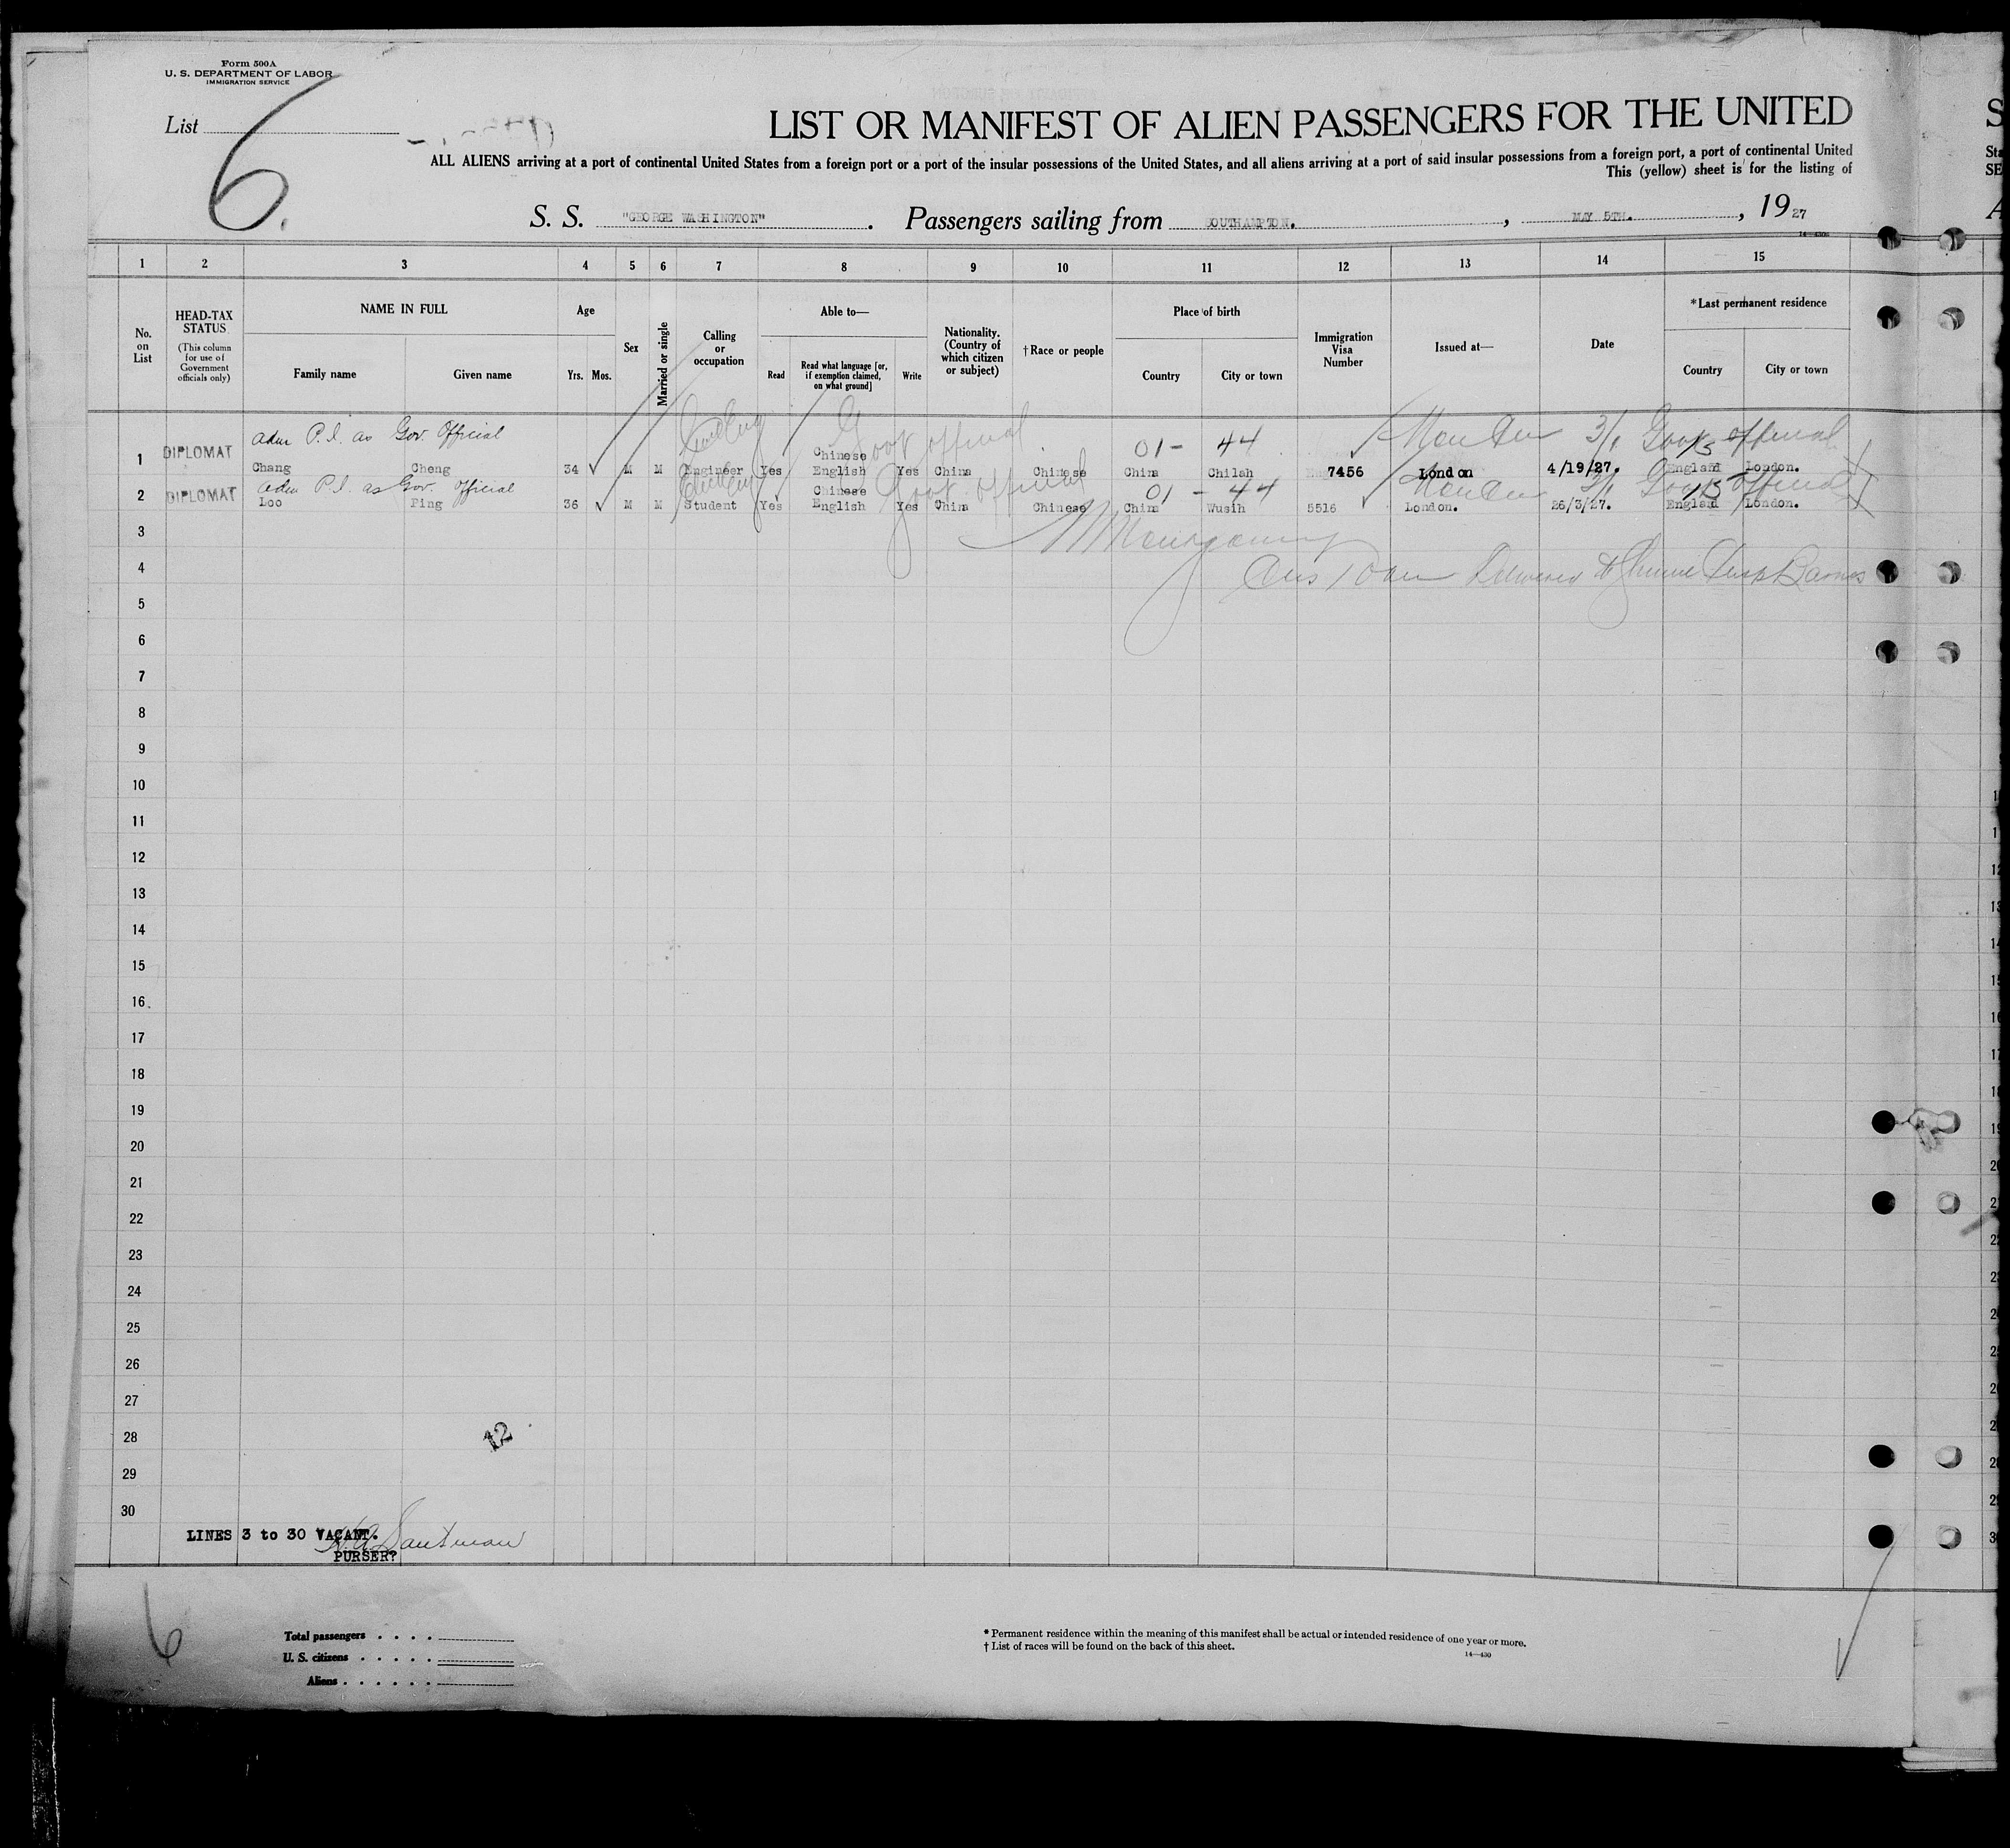 Form 500A
U. S. DEPARTMENT OF LABOR
IMMIGRATION SERVICE
List 6.
LIST OR MANIFEST OF ALIEN PASSENGERS FOR THE UNITED
ALL ALIENS arriving at a port of continental United States from a foreign port or a port of the insular possessions of the United States, and all aliens arriving at a port of said insular possessions from a foreign port, a port of continental United
This (yellow) sheet is for the listing of
S. S. "GEORGE WASHINGTON". Passengers sailing from SOUTHAMPTON., MAY 5TH., 1927
1 2 3 4 5 6 7 8 9 10 11 12 13 14 15
No. on List
HEAD-TAX STATUS
(This column for use of Government officials only)
NAME IN FULL
Family name Given name
Age
Yrs. Mos.
Sex
Married or single
Calling or occupation
Able to—
Read
Read what language [or, if exemption claimed, on what ground]
Write
Nationality. (Country of which citizen or subject)
†Race or people
Place of birth
Country City or town
Immigration Visa Number
Issued at—
Date
*Last permanent residence
Country City or town
adm P.I. as Gov. Official Gov official 01 - 44 3/1 Gov official
1 DIPLOMAT Chang Cheng 34 M M Engineer Yes Chinese English Yes China Chinese China Chilah 7456 London 4/19/27. England London.
adm P.I. as Gov. Official Gov official 01 - 44 3/1 Gov official
2 DIPLOMAT Loo Ping 36 M M Student Yes Chinese English Yes China Chinese China Wusih 5516 London. 26/3/27. England London.
3
4
5
6
7
8
9
10
11
12
13
14
15
16
17
18
19
20
21
22
23
24
25
26
27
28
12
29
30
LINES 3 to 30 VACANT.
PURSER?
6
Total passengers
U. S. citizens
Aliens
* Permanent residence within the meaning of this manifest shall be actual or intended residence of one year or more.
† List of races will be found on the back of this sheet.
14—430